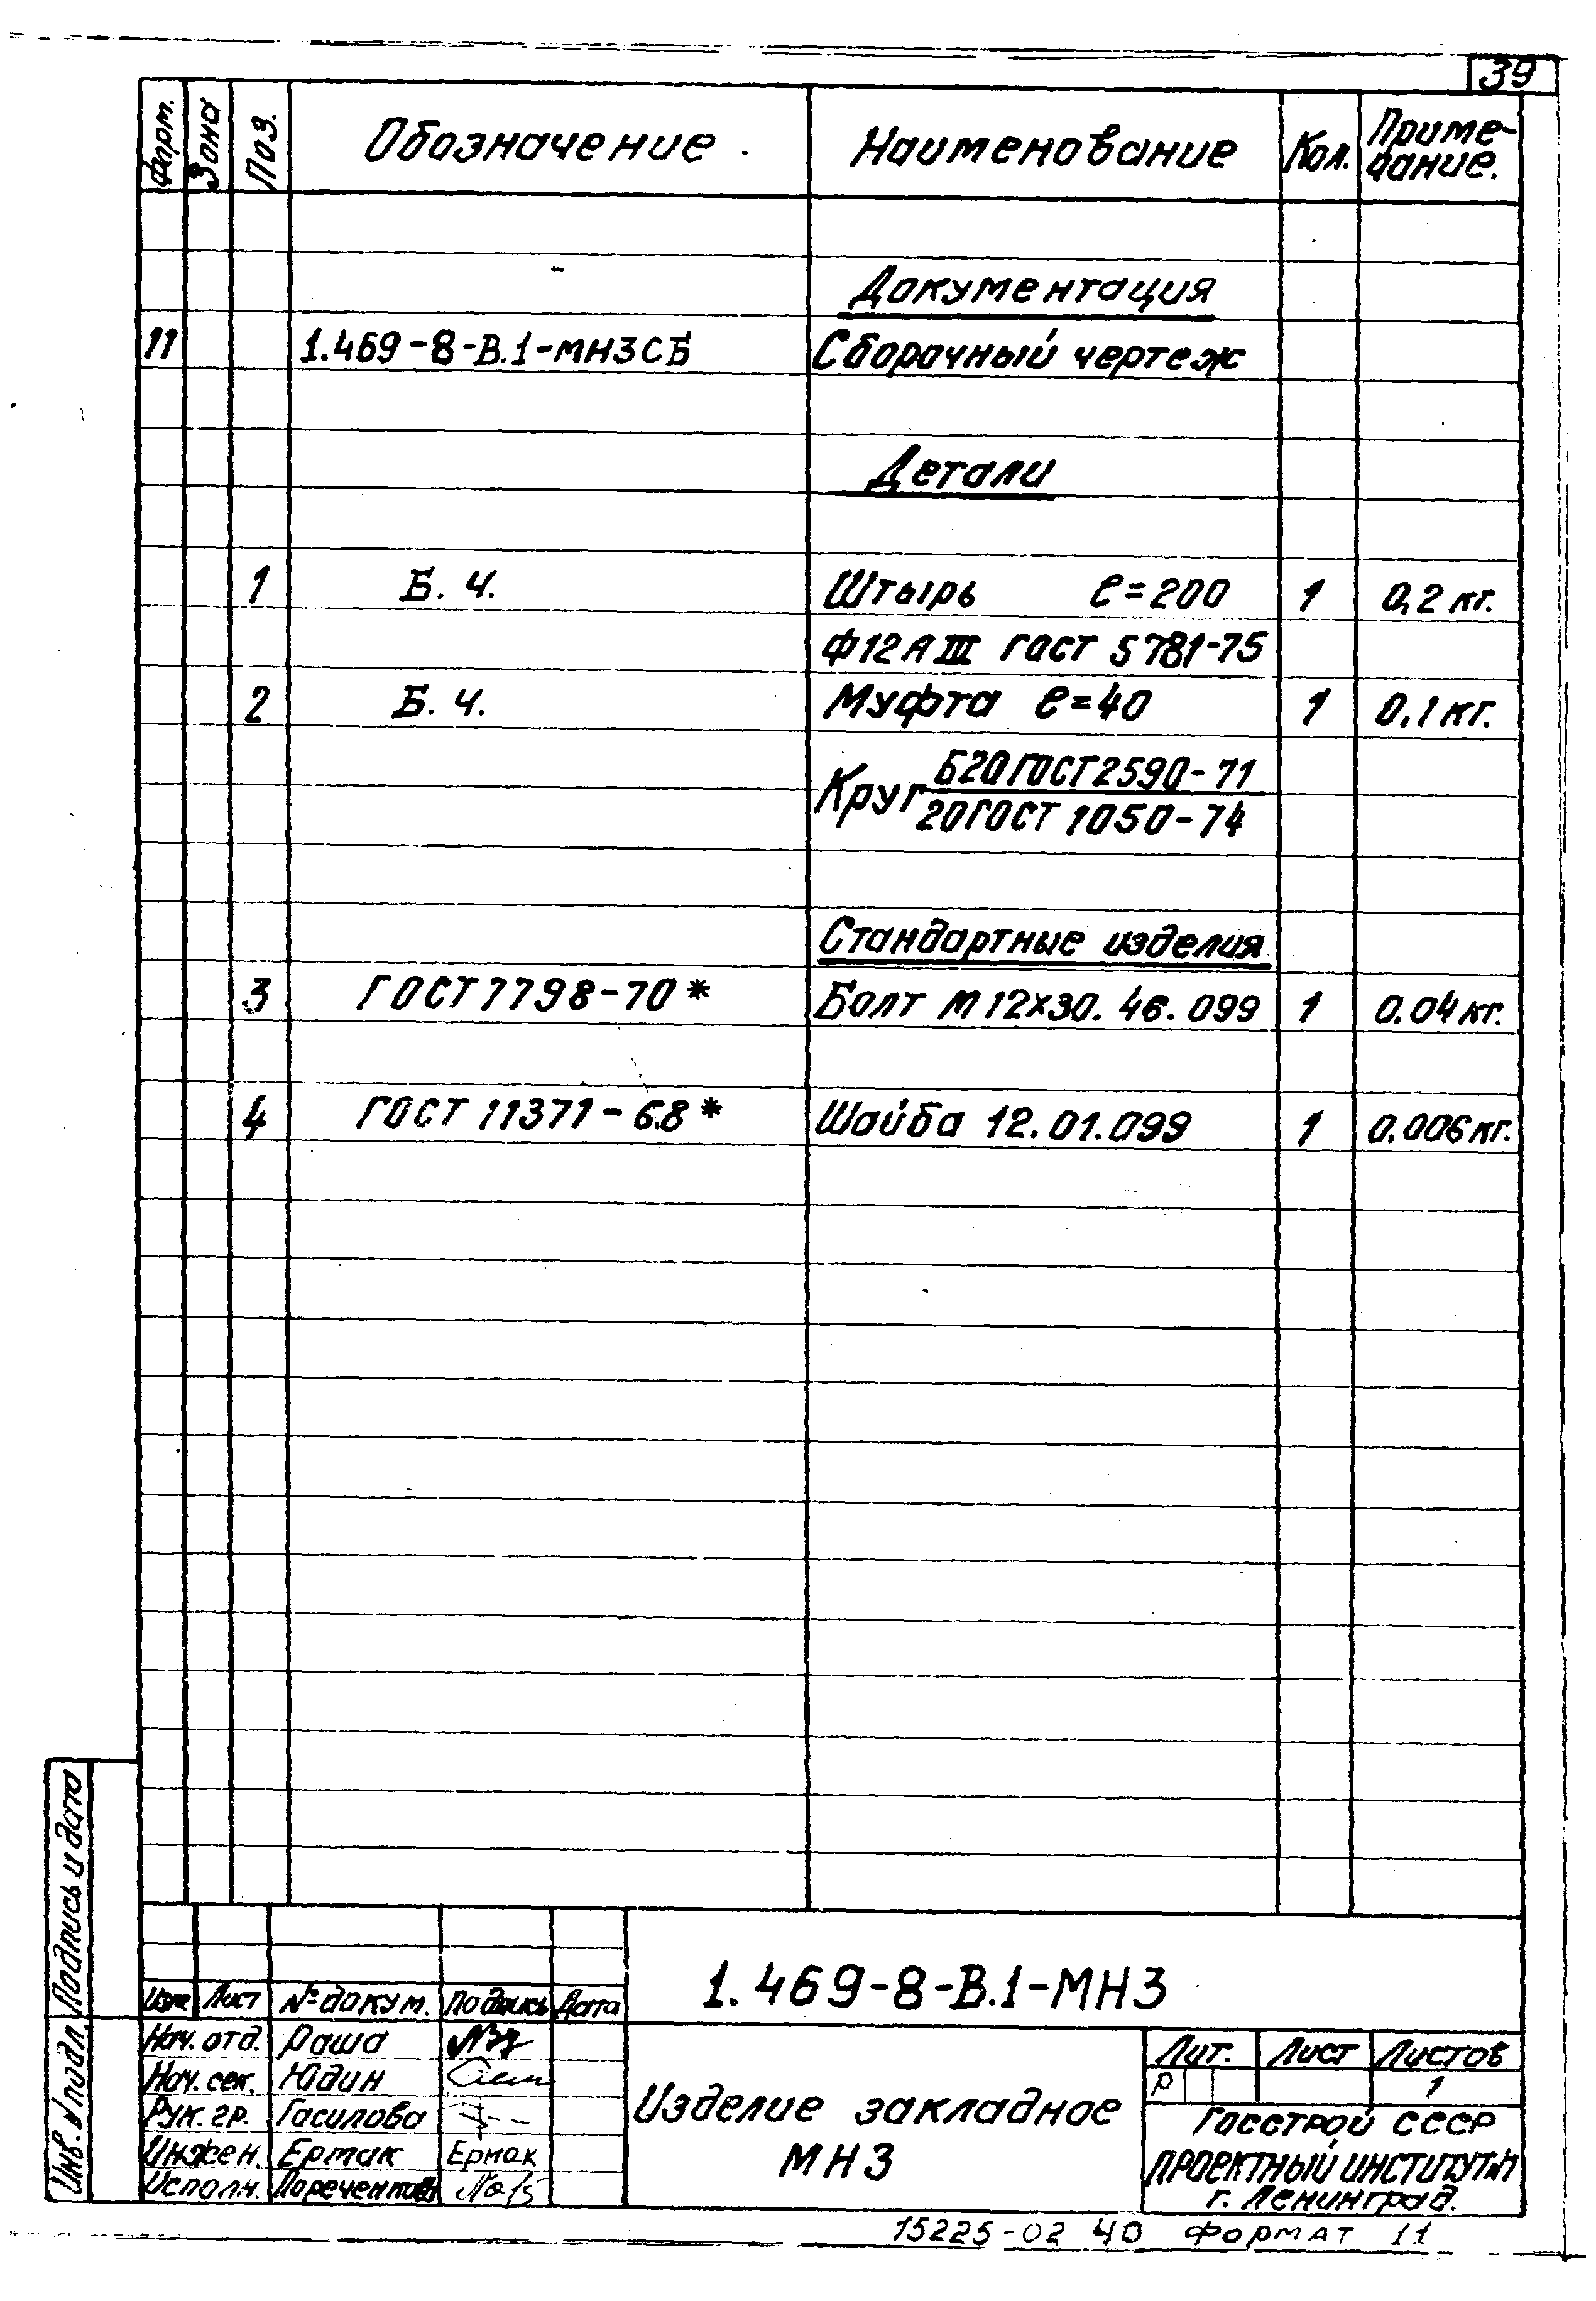 39
Форм. Зона Поз. Обозначение Наименование Кол. Приме-
чание.
Документация
11 1.469-8-В.1-МН3СБ Сборочный чертеж
Детали
1 Б. Ч. Штырь ℓ=200 1 0,2 кг.
Ф12АIII ГОСТ 5781-75
2 Б. Ч. Муфта ℓ=40 1 0,1 кг.
Круг Б20ГОСТ2590-71
20ГОСТ 1050-74
Стандартные изделия
3 ГОСТ 7798-70* Болт М12х30.46.099 1 0.04 кг.
4 ГОСТ 11371-68* Шайба 12.01.099 1 0.006 кг.
Подпись и дата
Инв. № подл.
1.469-8-В.1-МН3
Изм Лист № докум. Подпись Дата
Нач. отд. Раша
Нач. сек. Юдин
Рук. гр. Гасилова
Инжен. Ермак Ермак
Исполн.
Изделие закладное
МН3
Лит. Лист Листов
Р 1
Госстрой СССР
ПРОЕКТНЫЙ ИНСТИТУТ №1
г. Ленинград.
15225-02 40 Формат 11